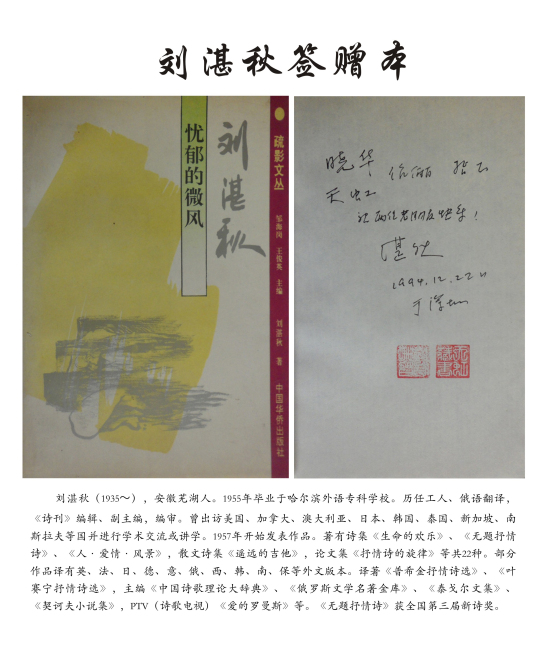 刘湛秋签赠本
忧郁的微风
刘湛秋
疏影文丛
主编
刘湛秋 著
中国华侨出版社
晓华
伉俪
天虹
湛秋
1994.12.22
刘湛秋（1935～），安徽芜湖人。1955年毕业于哈尔滨外语专科学校。历任工人、俄语翻译，
《诗刊》编辑、副主编，编审。曾出访美国、加拿大、澳大利亚、日本、韩国、泰国、新加坡、南
斯拉夫等国并进行学术交流或讲学。1957年开始发表作品。著有诗集《生命的欢乐》、《无题抒情
诗》、《人·爱情·风景》，散文诗集《遥远的吉他》，论文集《抒情诗的旋律》等共22种。部分
作品译有英、法、日、德、意、俄、西、韩、南、保等外文版本。译著《普希金抒情诗选》、《叶
赛宁抒情诗选》，主编《中国诗歌理论大辞典》、《俄罗斯文学名著金库》、《泰戈尔文集》、
《契诃夫小说集》，PTV（诗歌电视）《爱的罗曼斯》等。《无题抒情诗》获全国第三届新诗奖。